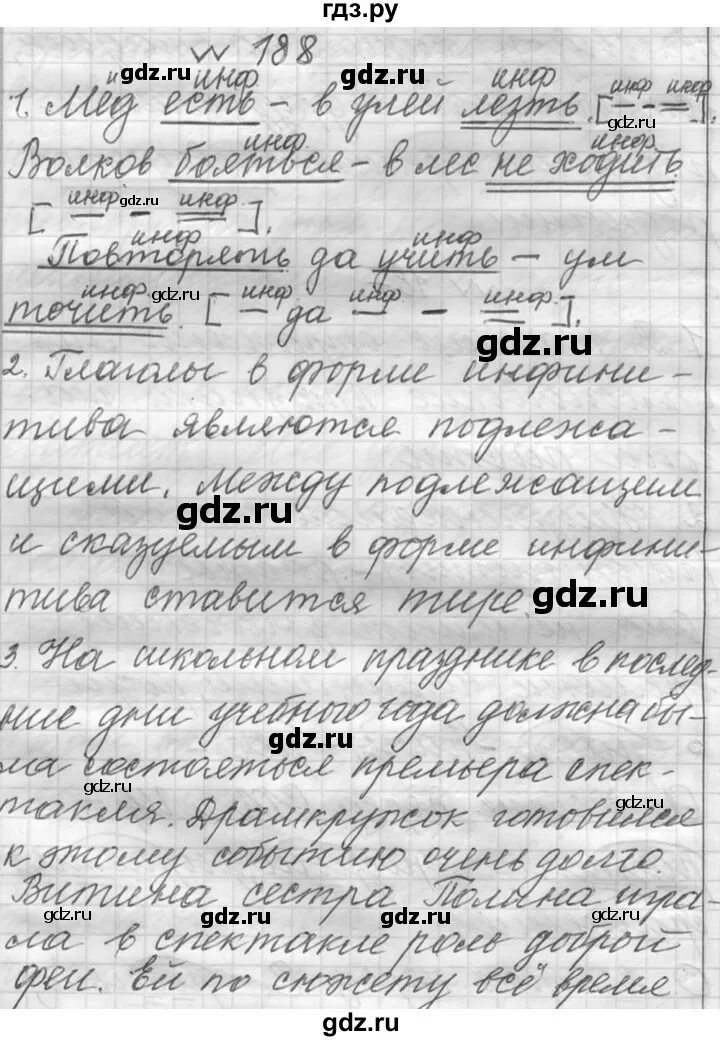 гдз.ру
№ 188
gdz.ru gdz.ru
инф инф инф инф
1. Мёд есть – в улей лезть. [ – ].
gdz.ru
инф инф
Волков бояться – в лес не ходить.
инф gdz.ru инф
[ – ].
инф инф
Повторять да учить – ум
инф инф инф инф
точить. [ да – ].
gdz.ru gdz.ru
2. Глаголы в форме инфини-
тива являются подлежа-
щими. Между подлежащим
gdz.ru
и сказуемым в форме инфини-
тива ставится тире.
gdz.ru
3. На школьном празднике в послед-
ние дни учебного года должна бы-
gdz.ru
ла состояться премьера спек-
gdz.ru gdz.ru
такля. Драмкружок готовился
к этому событию очень долго.
Витина сестра Полина игра-
gdz.ru gdz.ru gdz.ru gdz.ru
ла в спектакле роль доброй
феи. Ей по сюжету всё время
gdz.ru gdz.ru
gdz.ru